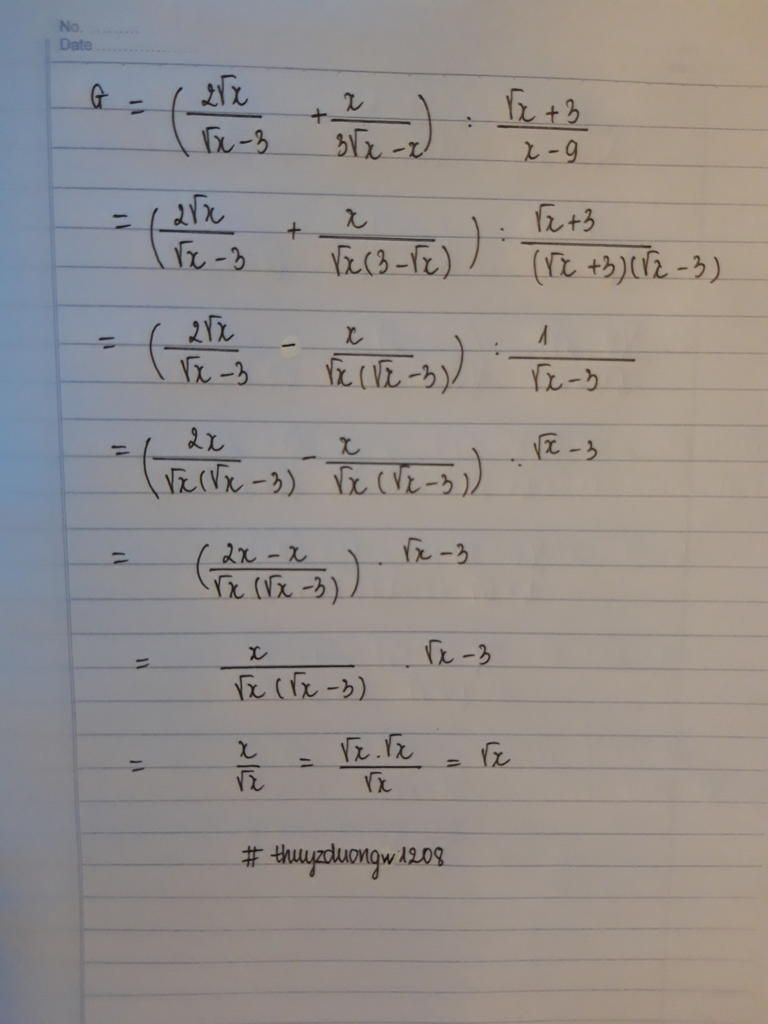 No. ..........
Date ....................
G = (2√x/(√x-3) + x/(3√x-x)) : (√x+3)/(x-9)
= (2√x/(√x-3) + x/(√x(3-√x))) : (√x+3)/((√x+3)(√x-3))
= (2√x/(√x-3) - x/(√x(√x-3))) : 1/(√x-3)
= (2x/(√x(√x-3)) - x/(√x(√x-3))) . √x-3
= ((2x-x)/(√x(√x-3))) . √x-3
= x/(√x(√x-3)) . √x-3
= x/√x = (√x.√x)/√x = √x
# thuyzduongw1208